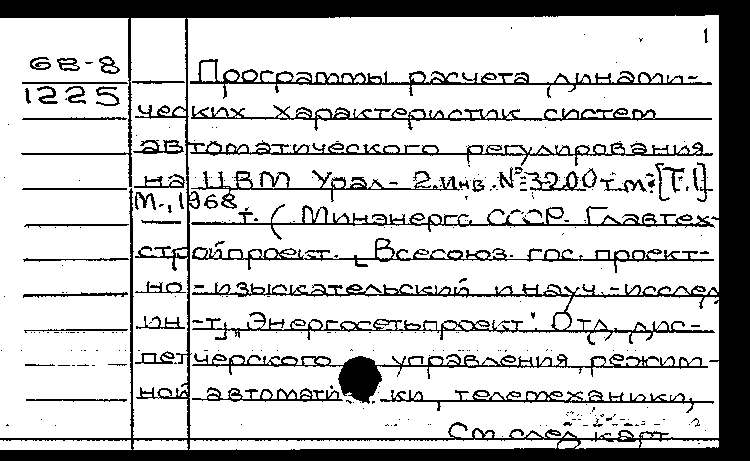 1
6В-8
1225
Программы расчета динами-
ческих характеристик систем
автоматического регулирования
на ЦВМ Урал-2. Инв. № 3200 т.м. [Т.1]
М., 1968
т. (Минэнерго СССР. Главтех-
стройпроект. Всесоюз. гос. проект-
но-изыскательский и науч.-исслед
ин-т "Энергосетьпроект". Отд. дис-
петчерского управления, режим-
ной автоматики, телемеханики,
См. след. карт.